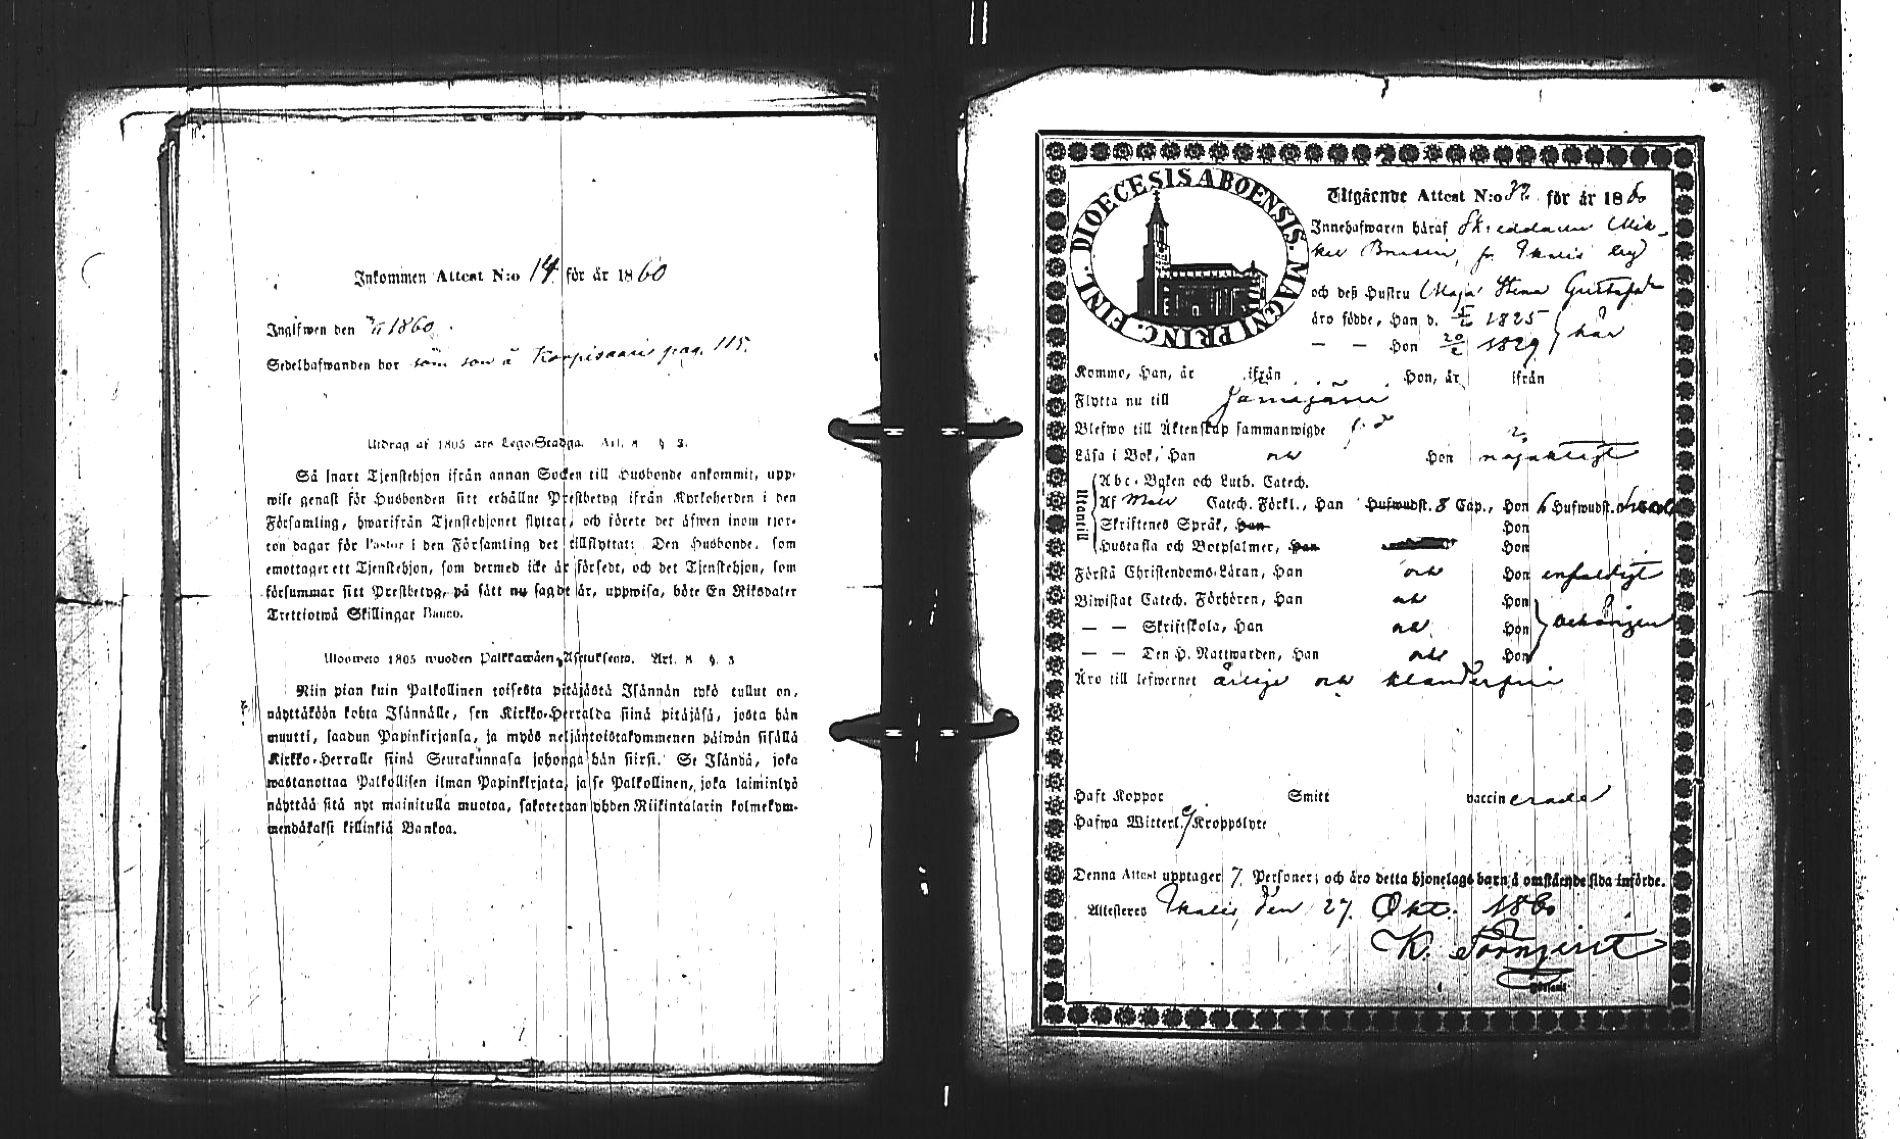 Inkommen Attest N:o 14 för år 1860
Ingifwen den 1860.
Sedelhafwanden bor som son å Karpisaari pag. 115.
Utdrag af 1805 års Lego-Stadga. Art. 8 § 3.
Så snart Tjenstehjon ifrån annan Socken till Husbonde ankommit, upp-
wise genast för Husbonden sitt erhållne Prestbetyg ifrån Kyrkoherden i den
Församling, hwarifrån Tjenstehjonet flyttat, och förete det äfwen inom fjor-
ton dagar för Pastor i den Församling det tillflyttat: Den Husbonde, som
emottager ett Tjenstehjon, som dermed icke är försedt, och det Tjenstehjon, som
försummar sitt Prestbetyg, på sätt nu sagdt är, uppwisa, böte En Riksdaler
Trettiotwå Skillingar Banco.
Ulosweto 1805 wuoden Palkkawäen Asetuksesta. Art. 8 §. 3
Niin pian kuin Palkollinen toisesta pitäjästä Isännän tykö tullut on,
näyttäköön kohta Isännälle, sen Kirkko-Herralda siinä pitäjäsä, josta hän
muutti, saadun Papinkirjansa, ja myös neljäntoistakymmenen päiwän sisällä
Kirkko-Herralle siinä Seurakunnasa johonga hän siirsi. Se Isändä, joka
wastanottaa Palkollisen ilman Papinkirjata, ja se Palkollinen, joka laiminlyö
näyttää sitä nyt mainitulla muotoa, sakotetaan yhden Riikintalarin kolmekym-
mendäkaksi killinkiä Bankoa.
DIOECESIS ABOENSIS. MAGNI PRINC. FINL.
Utgående Attest N:o 32 för år 1860
Innehafwaren häraf Skräddaren Mik-
kel fr. Ikalis by
och deß Hustru Maja Stina Gustafsdr
äro födde, Han d. 1825
— — Hon 20/2 1829 här
Komme, Han, år ifrån Hon, år ifrån
Flytta nu till Jämijärvi
Blefwo till Äktenskap sammanwigde
Läsa i Bok, Han och Hon nöjaktigt
Utantill
Abc-Boken och Luth. Catech.
Af Catech. Förkl., Han Hufwudst. 8 Cap., Hon 6 Hufwudst.
Skriftenes Språk, Han Hon
Hustafla och Botpsalmer, Han Hon
Förstå Christendoms-Läran, Han och Hon enfaldigt
Biwistat Catech. Förhören, Han och Hon
— — Skriftskola, Han och Hon behörigen
— — Den H. Nattwarden, Han och Hon
Äro till lefwernet ärlige och klanderfrie
Haft Koppor Smitt vaccinerade
Hafwa Witterl. ej Kroppslyte
Denna Attest upptager 7 Personer; och äro detta hjonelags barn å omstående sida införde.
Attesteres Ikalis den 27. Okt. 1860
K. Törnqvist